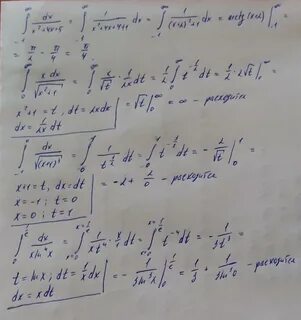 ∫_{-1}^{∞} dx/(x²+4x+5) = ∫_{-1}^{∞} 1/(x²+4x+4+1) dx = ∫_{-1}^{∞} 1/((x+2)²+1) dx = arctg(x+2)|_{-1}^{∞} =
= π/2 - π/4 = π/4
∫_{0}^{∞} x dx/√(x²+1) = ∫_{0}^{∞} x/√t · 1/(2x) dt = 1/2 ∫_{0}^{∞} t^{-1/2} dt = 1/2 · 2√t|_{0}^{∞} =
x²+1 = t, dt = 2x dx
= √t|_{0}^{∞} = ∞ - расходится
dx = 1/(2x) dt
∫_{-1}^{0} dx/√(x+1)³ = ∫_{0}^{1} 1/t^{3/2} dt = ∫_{0}^{1} t^{-3/2} dt = -2/√t|_{0}^{1} =
x+1 = t, dx = dt
x = -1; t = 0
x = 0; t = 1
= -2 + 2/0 - расходится
dt = ∫ t^{-4} dt = -1/(3t³)
t = ln x, dt = 1/x dx
dx = x dt
= 1/3 + 1/(3ln³0) - расходится